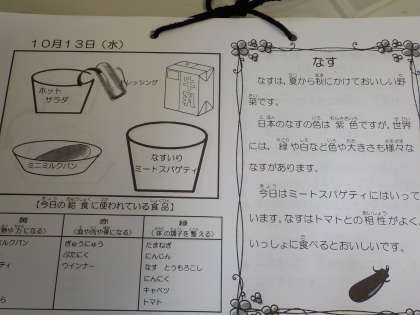 10月13日（水）
ドレッシング
ホット
サラダ
ミニミルクパン
なすいり
ミートスパゲティ
【今日の給食に使われている食品】
黄
赤
緑
（血や肉や骨になる）
（体の調子を整える）
ぎゅうにゅう
ぶたにく
ウインナー
たまねぎ
にんじん
なす とうもろこし
にんにく
キャベツ
トマト
なす
なすは、夏から秋にかけておいしい野
菜です。
日本のなすの色は紫色ですが、世界
には、緑や白など色や大きさも様々な
なすがあります。
今日はミートスパゲティにはいって
います。なすはトマトとの相性がよく、
いっしょに食べるとおいしいです。